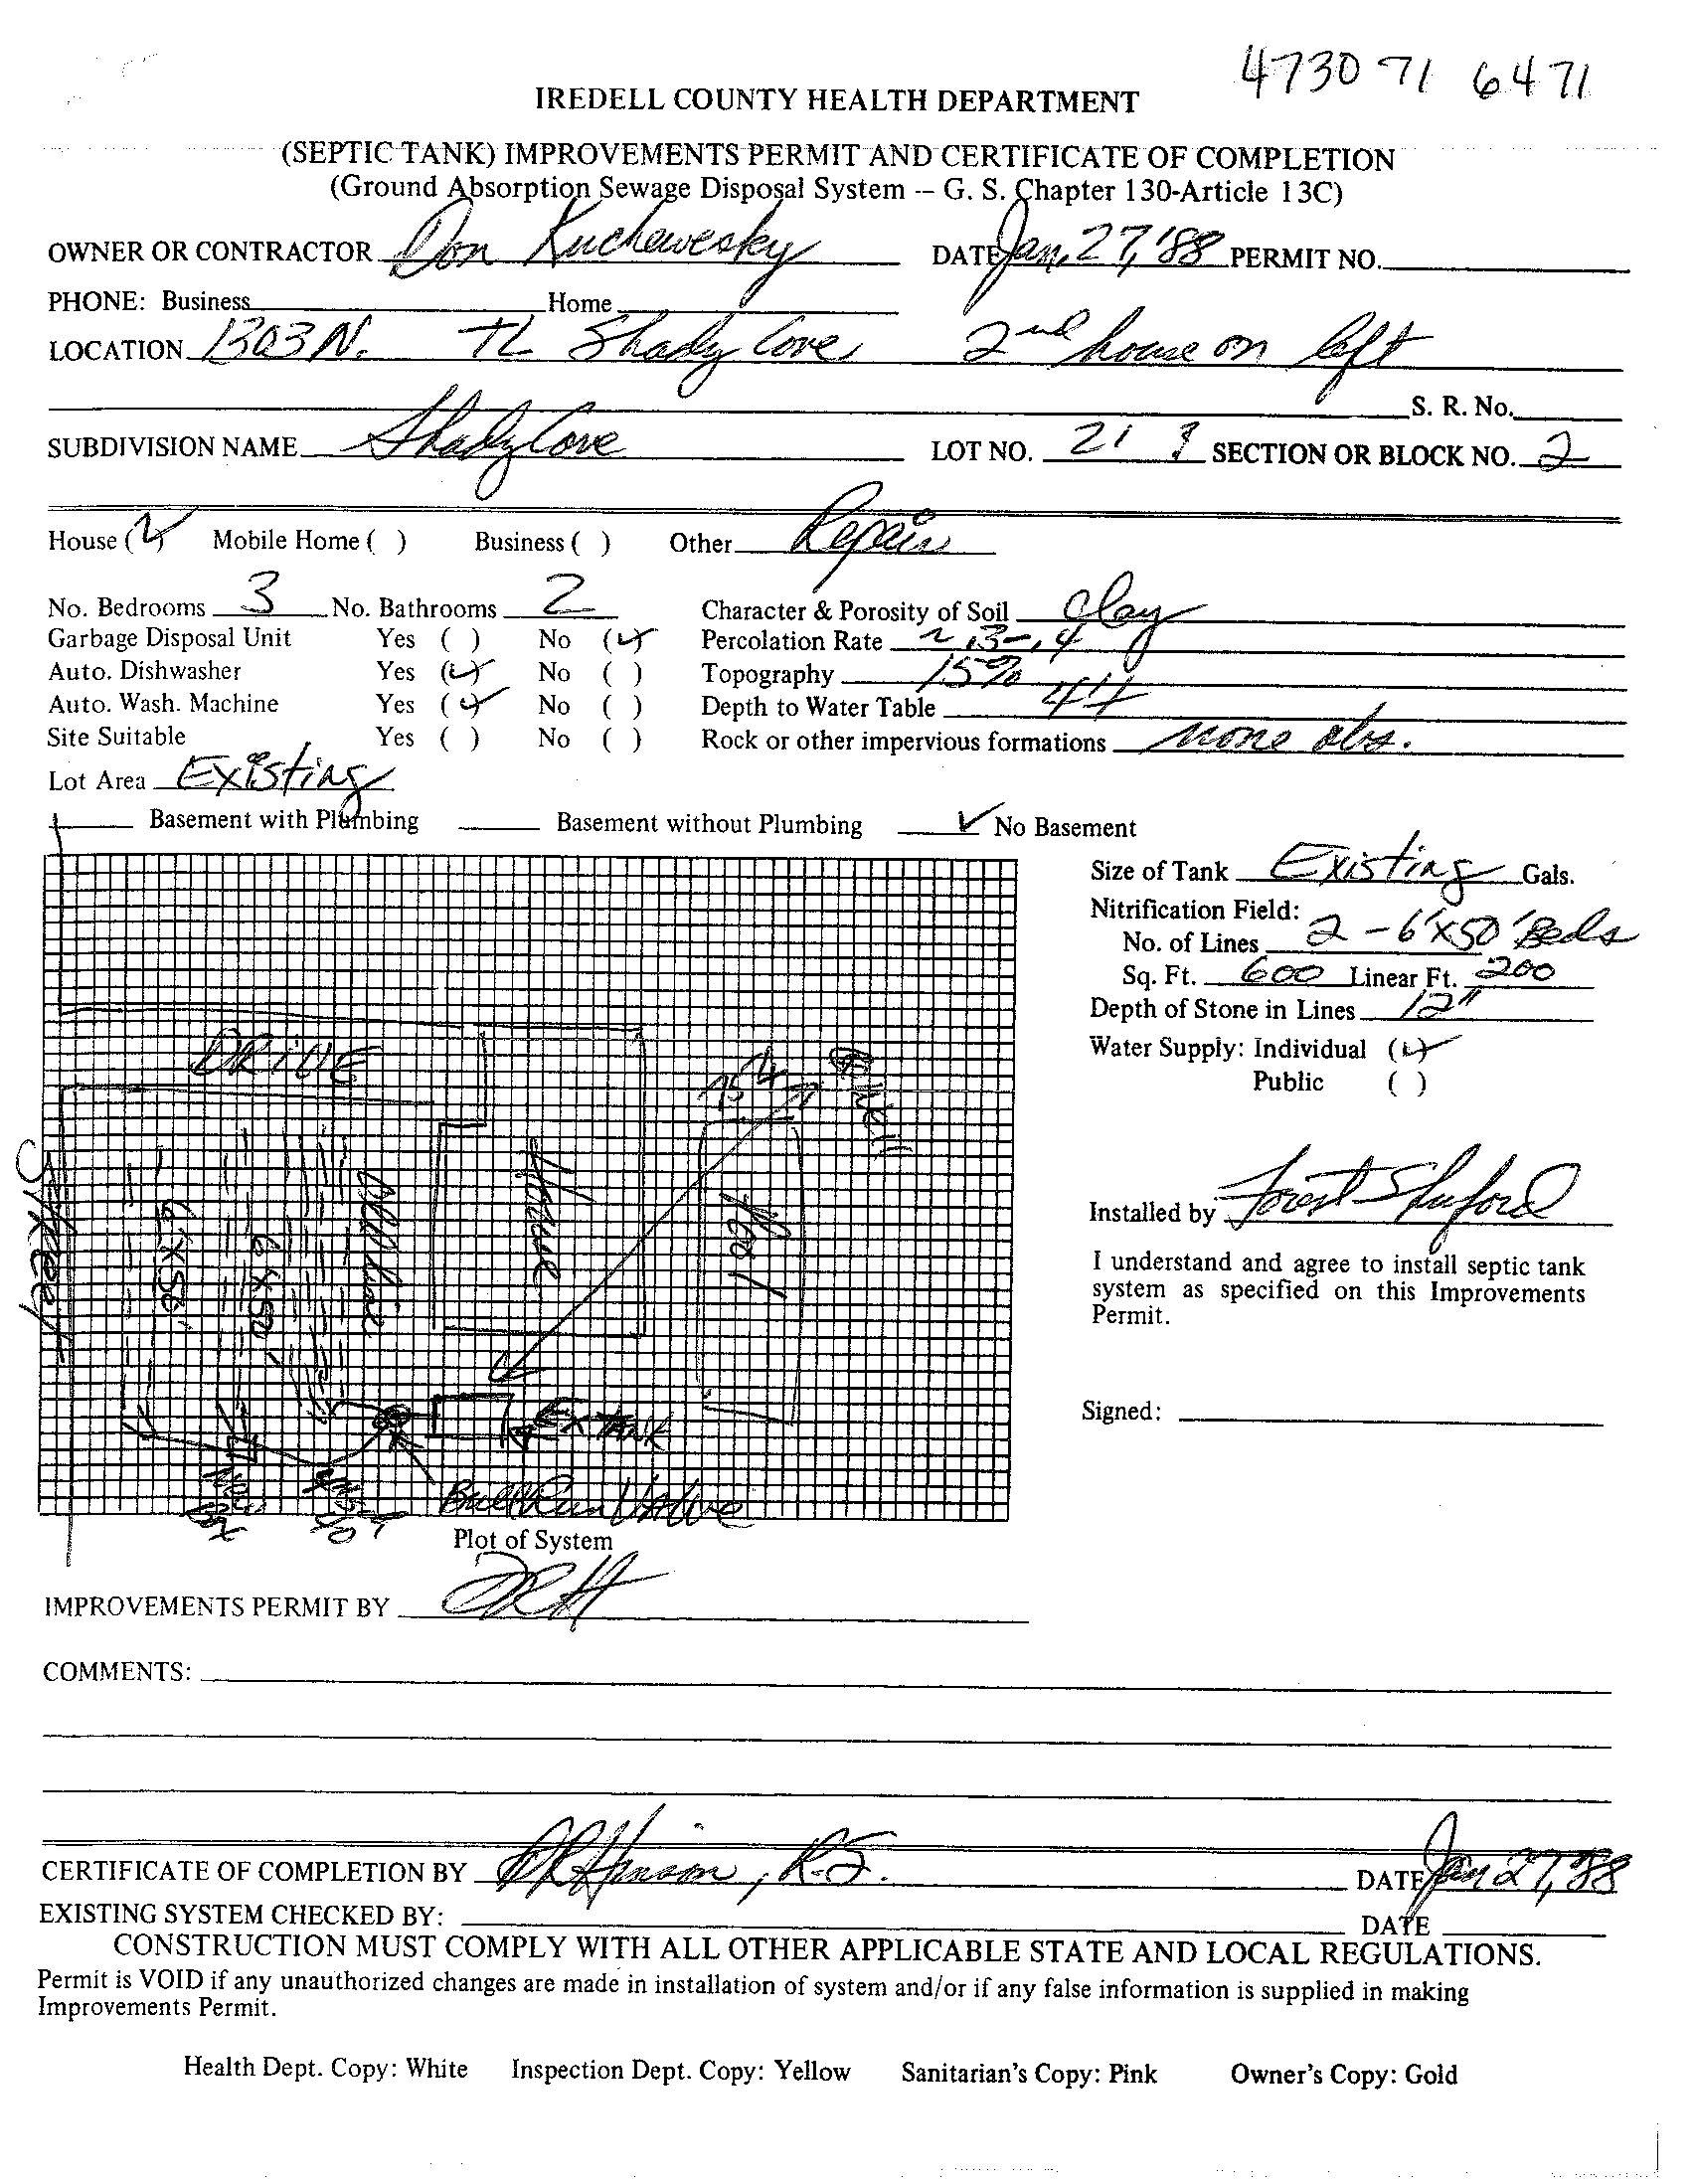 4730 71 6471
IREDELL COUNTY HEALTH DEPARTMENT
(SEPTIC TANK) IMPROVEMENTS PERMIT AND CERTIFICATE OF COMPLETION
(Ground Absorption Sewage Disposal System -- G. S. Chapter 130-Article 13C)
OWNER OR CONTRACTOR Don Kuchewesky DATE Jan. 27, '88 PERMIT NO.
PHONE: Business Home
LOCATION 1303 N. TL Shady Cove 2nd house on left
S. R. No.
SUBDIVISION NAME Shady Cove LOT NO. 21 SECTION OR BLOCK NO. 2
House (✓) Mobile Home ( ) Business ( ) Other Repair
No. Bedrooms 3 No. Bathrooms 2 Character & Porosity of Soil clay
Garbage Disposal Unit Yes ( ) No (✓) Percolation Rate ~ .3-.4
Auto. Dishwasher Yes (✓) No ( ) Topography 15%
Auto. Wash. Machine Yes (✓) No ( ) Depth to Water Table 4'+
Site Suitable Yes ( ) No ( ) Rock or other impervious formations none obs.
Lot Area Existing
Basement with Plumbing Basement without Plumbing ✓ No Basement
Size of Tank Existing Gals.
Nitrification Field:
No. of Lines 2 - 6'X50' Beds
Sq. Ft. 600 Linear Ft. 200
Depth of Stone in Lines 12"
Water Supply: Individual (✓)
Public ( )
DRIVE
75'+
Well
Street
6X50'
6X50'
Old Line
House
Pool
EX TANK
Bull Run Valve
Plot of System
Installed by Forest Shuford
I understand and agree to install septic tank
system as specified on this Improvements
Permit.
Signed:
IMPROVEMENTS PERMIT BY DRH
COMMENTS:
CERTIFICATE OF COMPLETION BY DRHinson, R.S. DATE Jan 27, 88
EXISTING SYSTEM CHECKED BY: DATE
CONSTRUCTION MUST COMPLY WITH ALL OTHER APPLICABLE STATE AND LOCAL REGULATIONS.
Permit is VOID if any unauthorized changes are made in installation of system and/or if any false information is supplied in making
Improvements Permit.
Health Dept. Copy: White Inspection Dept. Copy: Yellow Sanitarian's Copy: Pink Owner's Copy: Gold